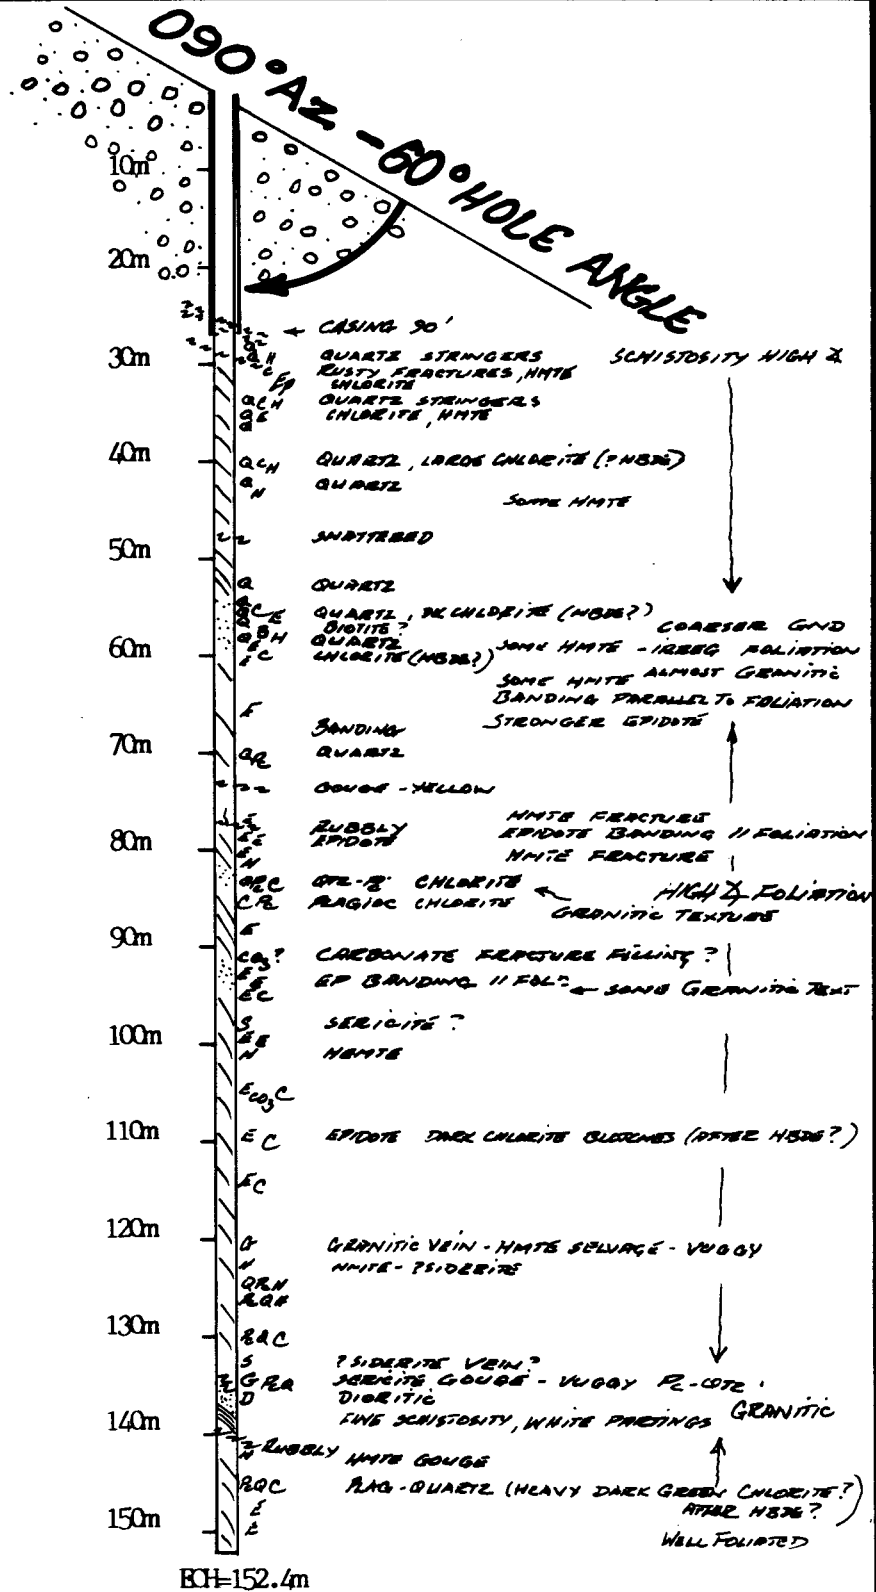 090°AZ -60° HOLE ANGLE
10m
20m
← CASING 90'
30m QH QUARTZ STRINGERS SCHISTOSITY HIGH ∡
C RUSTY FRACTURES, HMTE
EP CHLORITE
QCH QUARTZ STRINGERS
QE CHLORITE, HMTE
Q
40m QCH QUARTZ, LARGE CHLORITE (?HBDE)
Q QUARTZ
H SOME HMTE
SHATTERED
50m
Q QUARTZ
QCE QUARTZ, DK CHLORITE (HBDE?)
BIOTITE? COARSER GND
QBH QUARTZ SOME HMTE - IRREG FOLIATION
60m EC CHLORITE (HBDE?)
SOME HMTE ALMOST GRANITIC
BANDING PARALLEL TO FOLIATION
E STRONGER EPIDOTE
BANDING
70m QPL QUARTZ
GOUGE - YELLOW
HMTE FRACTURE
RUBBLY EPIDOTE BANDING // FOLIATION
80m E EPIDOTE
H HMTE FRACTURE
QPLC QTZ-PL CHLORITE ← HIGH ∡ FOLIATION
CPL PLAGIOC CHLORITE GRANITIC TEXTURE
E
90m
CO3? CARBONATE FRACTURE FILLING?
E EP BANDING // FOLN ← SOME GRANITIC TEXT
EC
S SERICITE?
100m EE
H HEMTE
ECO3C
110m EC EPIDOTE DARK CHLORITE BLOTCHES (AFTER HBDE?)
EC
120m
G GRANITIC VEIN - HMTE SELVAGE - VUGGY
H HMTE - ?SIDERITE
QPLH
PLQH
130m PLQC
S ?SIDERITE VEIN?
G PLQ SERICITE GOUGE - VUGGY PL-QTZ
D DIORITIC
140m FINE SCHISTOSITY, WHITE PARTINGS GRANITIC
RUBBLY
H HMTE GOUGE
PLQC PLAG-QUARTZ (HEAVY DARK GREEN CHLORITE?)
E AFTER HBDE?
150m E
WELL FOLIATED
EOH=152.4m